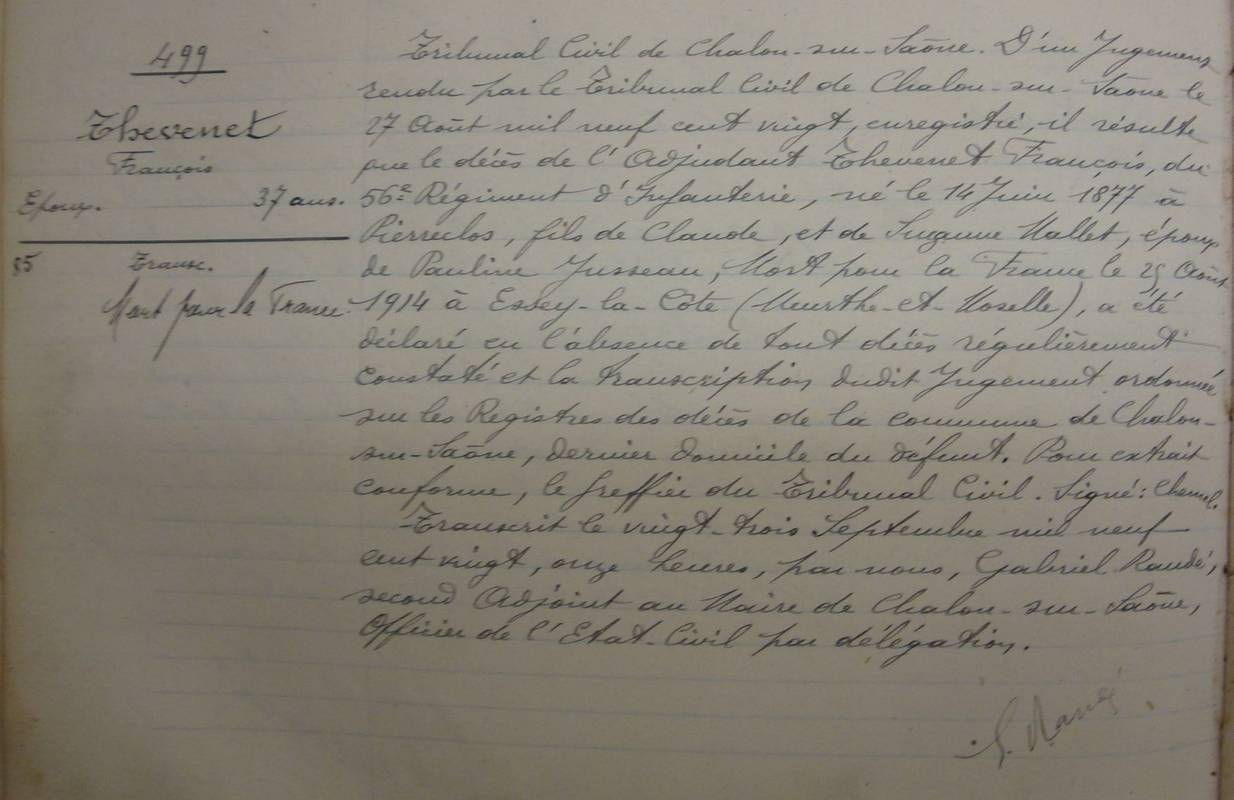 499
Thevenet
François
Epoux. 37 ans.
85 Transc.
Mort pour la France.
Tribunal Civil de Chalon-sur-Saône. D'un Jugement
rendu par le Tribunal Civil de Chalon-sur-Saône le
27 Août mil neuf cent vingt, enregistré, il résulte
que le décès de l'Adjudant Thevenet François, du
56e Régiment d'Infanterie, né le 14 Juin 1877 à
Pierreclos, fils de Claude, et de Suzanne Mallet, époux
de Pauline Jusseau, Mort pour la France le 25 Août
1914 à Essey-la-Côte (Meurthe-et-Moselle), a été
déclaré en l'absence de tout décès régulièrement
constaté et la transcription dudit Jugement ordonnée
sur les Registres des décès de la commune de Chalon-
sur-Saône, dernier domicile du défunt. Pour extrait
conforme, le Greffier du Tribunal Civil. Signé:
Transcrit le vingt-trois Septembre mil neuf
cent vingt, onze heures, par nous, Gabriel Randé,
second Adjoint au Maire de Chalon-sur-Saône,
Officier de l'Etat-Civil par délégation.